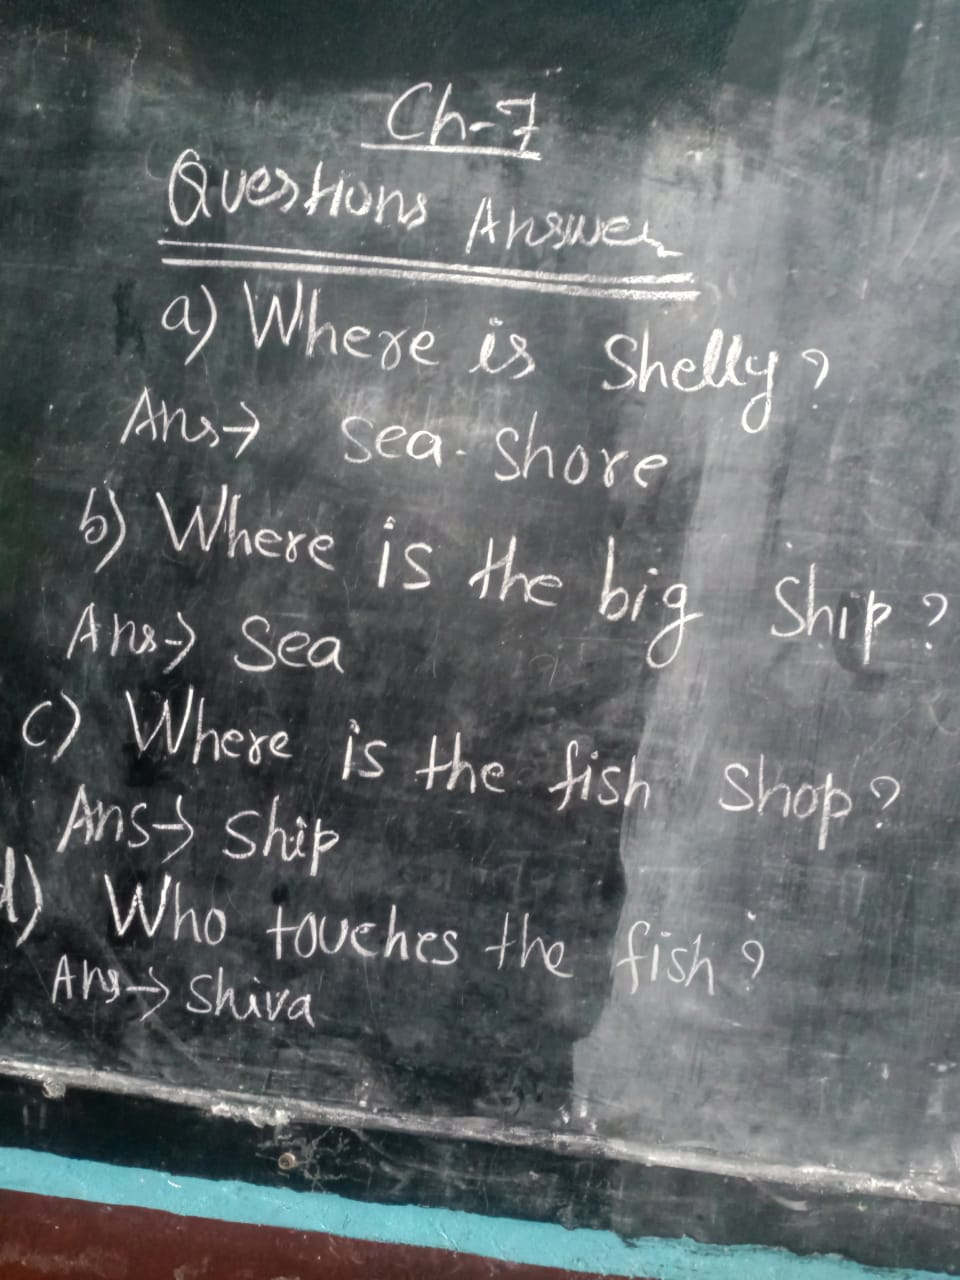 Ch-7
Questions Answer
a) Where is Shelly?
Ans→ Sea-Shore
b) Where is the big Ship?
Ans→ Sea
c) Where is the fish Shop?
Ans→ Ship
d) Who touches the fish?
Ans→ Shiva